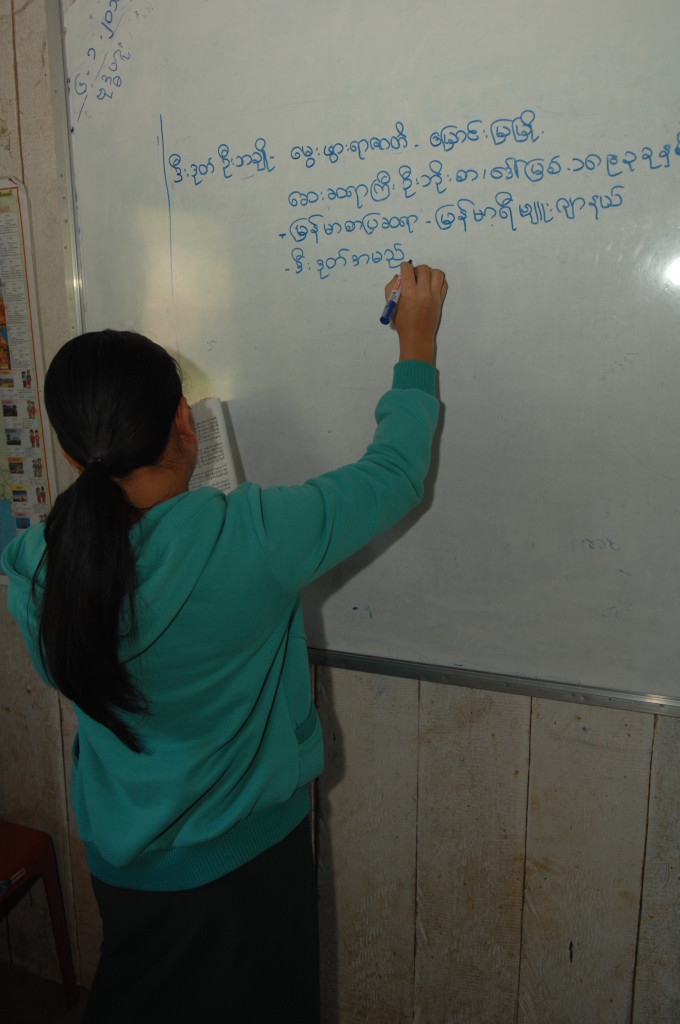 ဒီးဒုတ် ဦးဘချို - မွေးဖွားရာဇာတိ - မြောင်းမြမြို့
ဆေးဆရာကြီး ဦးဘိုးစာ၊ ဒေါ်မြစ် ၁၈၉၃ ခုနှစ်
- မြန်မာစာပြဆရာ - မြန်မာ့ရီမျူးဂျာနယ်
- ဒီးဒုတ်အမည်